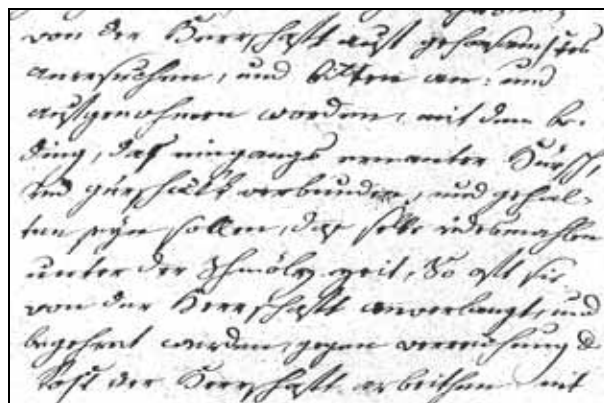 von der Herrschafft auf gehorsamstes
anersuchen, und bitten an: und
aufgenohmen worden, mit dem be-
ding, daß eingangs ernanter Hirsch,
und gürschakl verbunden, und gehal-
ten seyn sollen, das selbe iedesmahlen
unter der Schmölz zeit, So oft sie
von der Herrschafft anverlangt, und
begehret werden, gegen verreichung d.
Kost der Herrschafft arbeithen mit